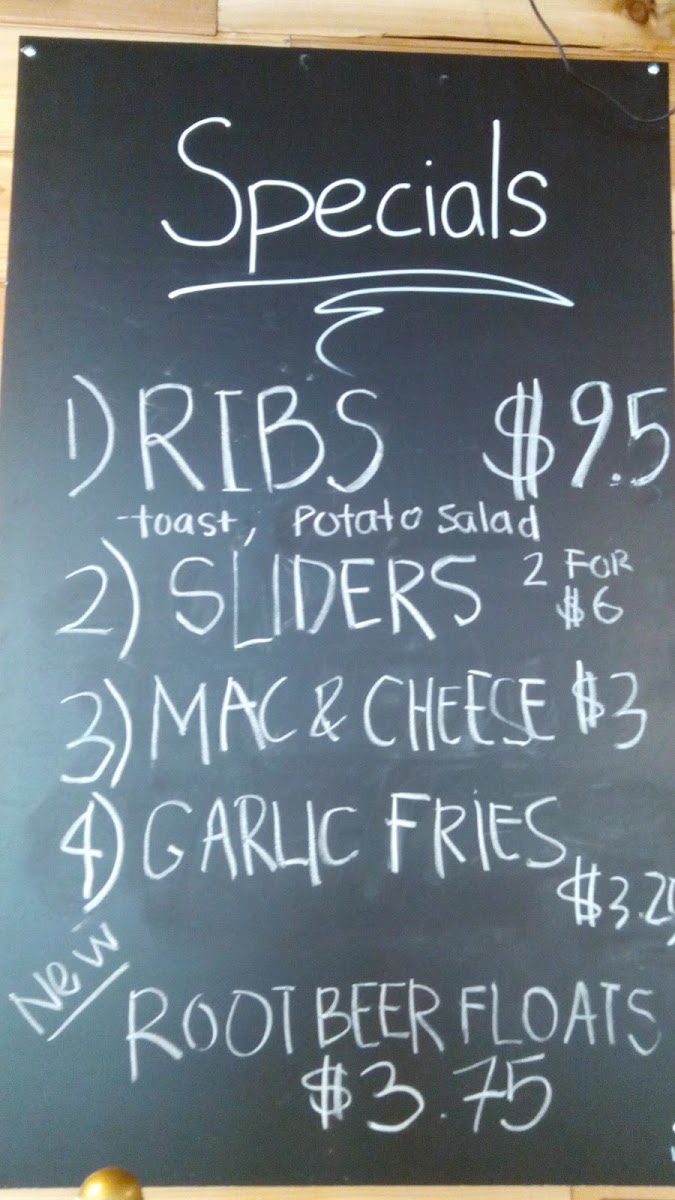 Specials
1) RIBS $9.5
toast, Potato Salad
2) SLIDERS 2 FOR
$6
3) MAC & CHEESE $3
4) GARLIC FRIES
$3.25
New
ROOT BEER FLOATS
$3.75